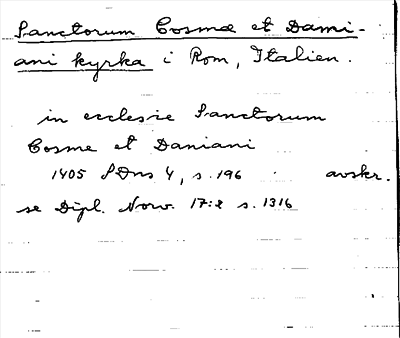 Sanctorum Cosmæ et Dami-
ani kyrka i Rom, Italien.
in ecclesie Sanctorum
Cosme et Daniani
1405 SDns 4, s. 196 avskr.
se Dipl. Norv. 17:2 s. 1316